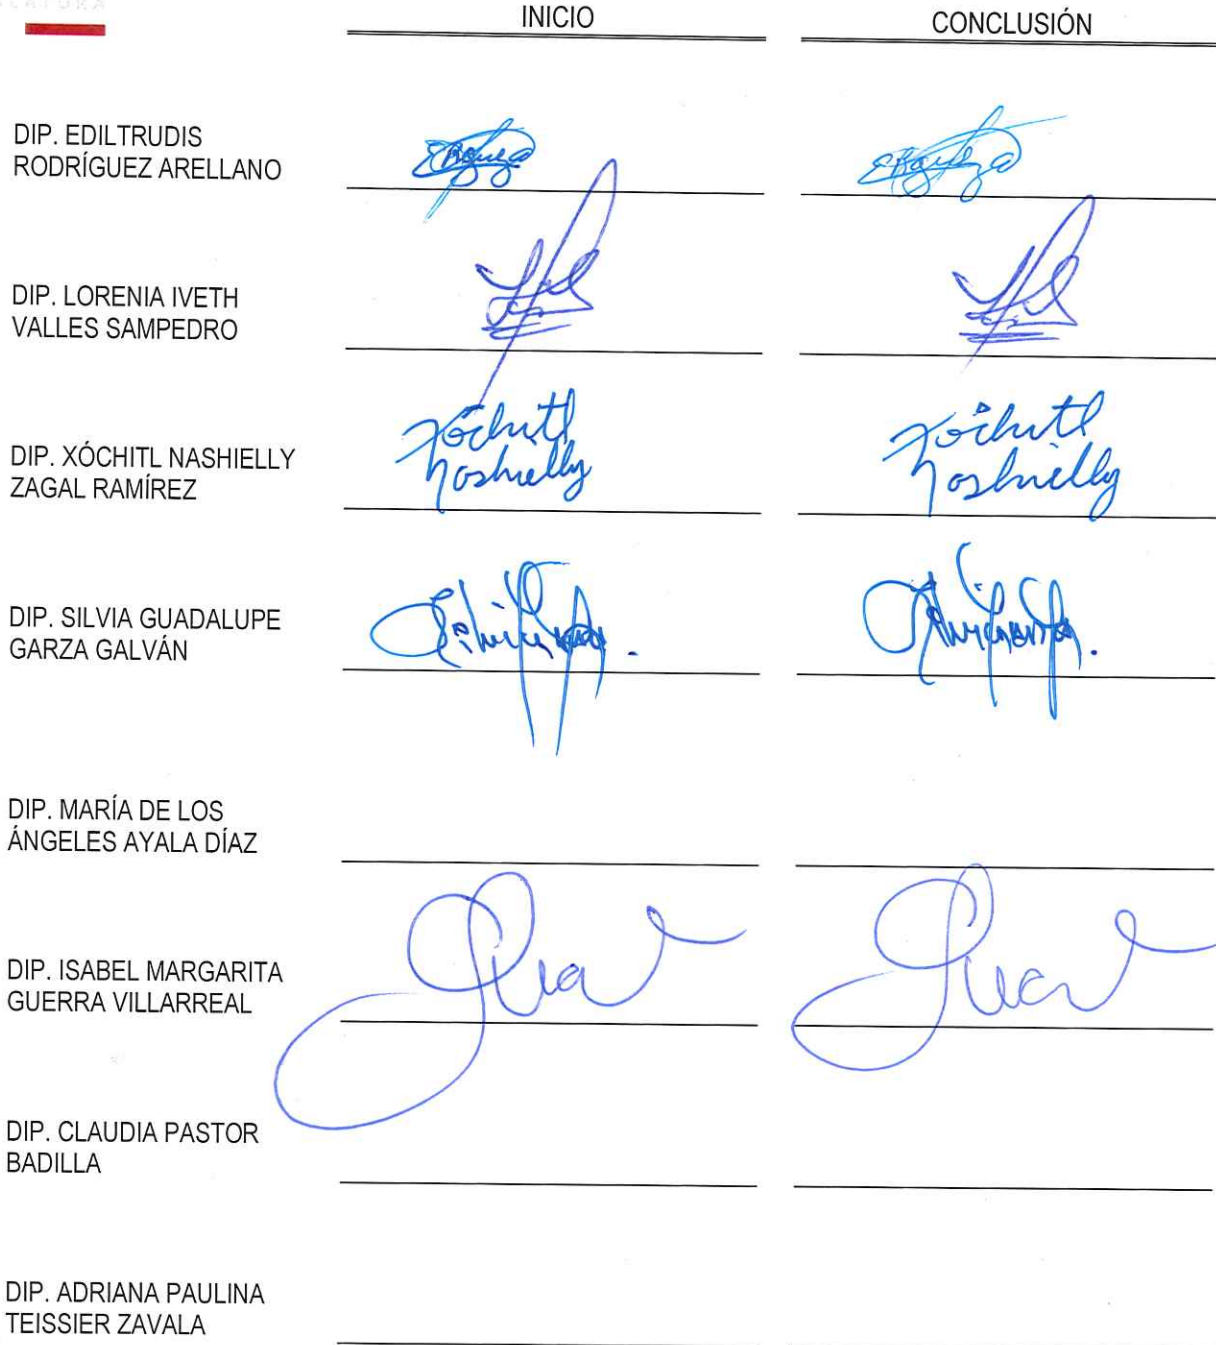 INICIO
CONCLUSIÓN
DIP. EDILTRUDIS
RODRÍGUEZ ARELLANO
DIP. LORENIA IVETH
VALLES SAMPEDRO
DIP. XÓCHITL NASHIELLY
ZAGAL RAMÍREZ
Xóchitl
Nashielly
Xóchitl
Nashielly
DIP. SILVIA GUADALUPE
GARZA GALVÁN
DIP. MARÍA DE LOS
ÁNGELES AYALA DÍAZ
DIP. ISABEL MARGARITA
GUERRA VILLARREAL
DIP. CLAUDIA PASTOR
BADILLA
DIP. ADRIANA PAULINA
TEISSIER ZAVALA